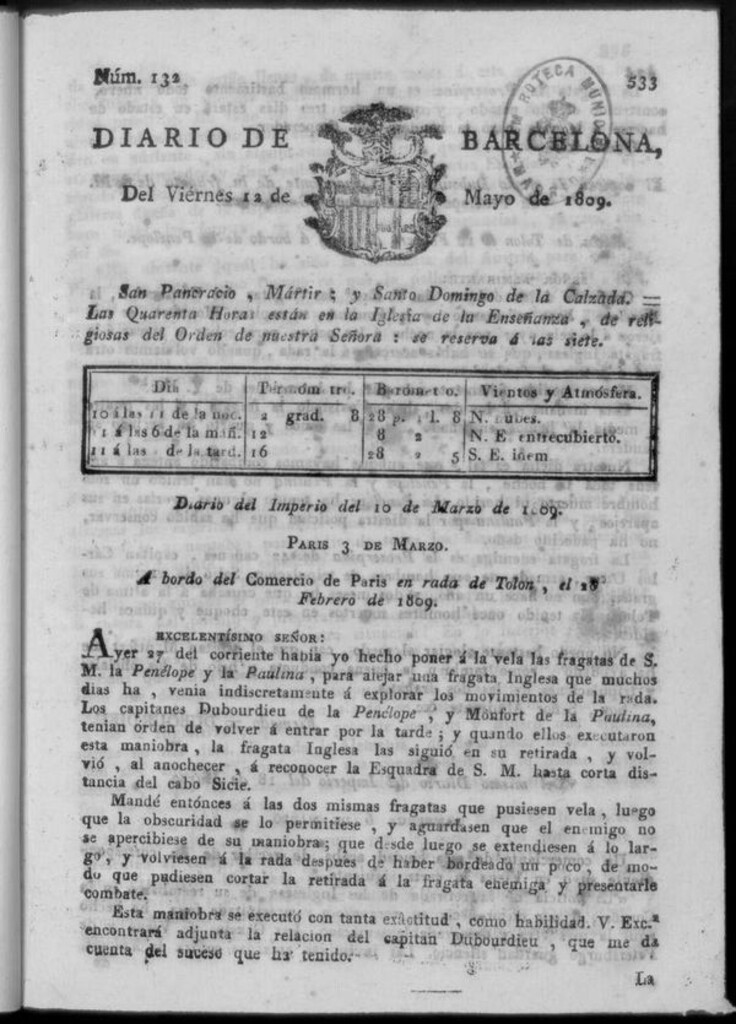 Núm. 132
533
DIARIO DE BARCELONA,
Del Viérnes 12 de Mayo de 1809.
San Pancracio, Mártir; y Santo Domingo de la Calzada. =
Las Quarenta Horas están en la Iglesia de la Enseñanza, de reli-
giosas del Orden de nuestra Señora: se reserva á las siete.
Dia Termómetro. Barómetro. Vientos y Atmósfera.
10 á las 11 de la noc. 2 grad. 8 28 p. l. 8 N. nubes.
11 á las 6 de la mañ. 12 8 2 N. E entrecubierto.
11 á las de la tard. 16 28 2 5 S. E. idem
Diario del Imperio del 10 de Marzo de 1809.
PARIS 3 DE MARZO.
A bordo del Comercio de Paris en rada de Tolon, el 28
Febrero de 1809.
EXCELENTÍSIMO SEÑOR:
Ayer 27 del corriente habia yo hecho poner á la vela las fragatas de S.
M. la Penélope y la Paulina, para alejar una fragata Inglesa que muchos
dias ha, venia indiscretamente á explorar los movimientos de la rada.
Los capitanes Dubourdieu de la Penélope, y Monfort de la Paulina,
tenian órden de volver á entrar por la tarde; y quando ellos executaron
esta maniobra, la fragata Inglesa las siguió en su retirada, y vol-
vió, al anochecer, á reconocer la Esquadra de S. M. hasta corta dis-
tancia del cabo Sicie.
Mandé entónces á las dos mismas fragatas que pusiesen vela, luego
que la obscuridad se lo permitiese, y aguardasen que el enemigo no
se apercibiese de su maniobra; que desde luego se extendiesen á lo lar-
go, y volviesen á la rada despues de haber bordeado un poco, de mo-
do que pudiesen cortar la retirada á la fragata enemiga y presentarle
combate.
Esta maniobra se executó con tanta exâctitud, como habilidad. V. Exc.ª
encontrará adjunta la relacion del capitan Dubourdieu, que me da
cuenta del suceso que ha tenido.
La